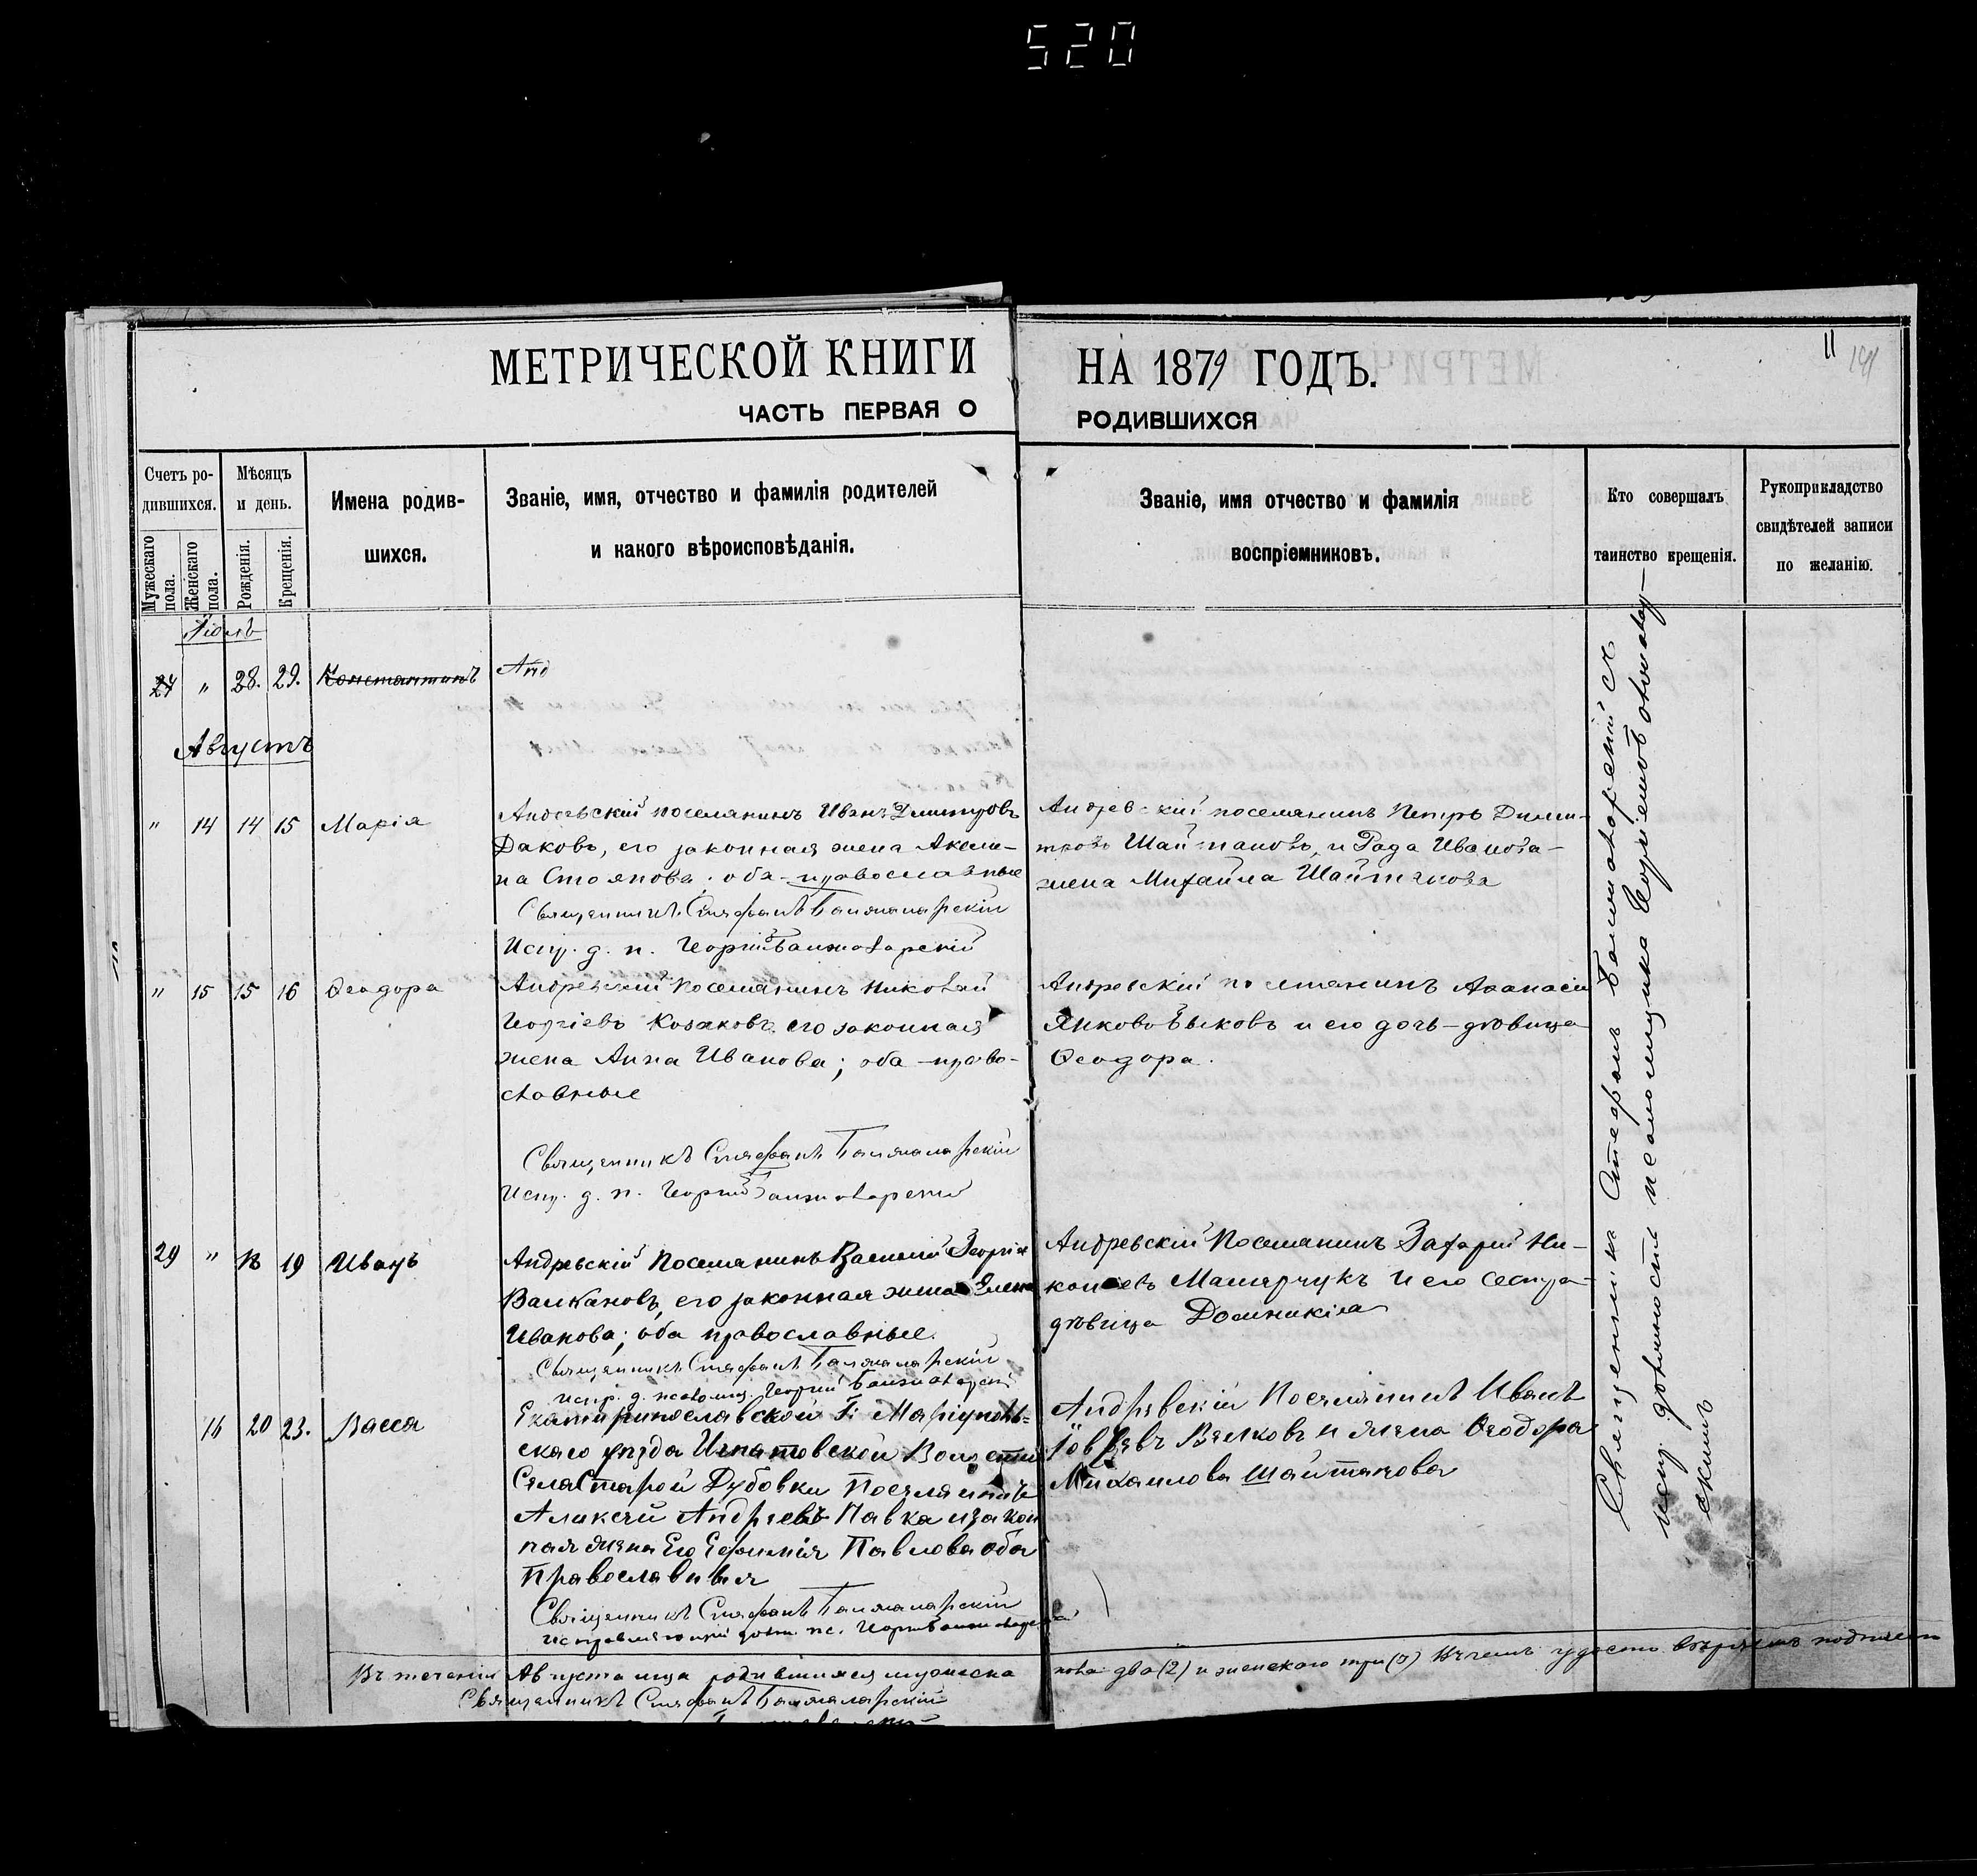 520
МЕТРИЧЕСКОЙ КНИГИ НА 1879 ГОДЪ.
11
ЧАСТЬ ПЕРВАЯ О РОДИВШИХСЯ
Счетъ родившихся.
Мужескаго пола.
Женскаго пола.
Мѣсяцъ и день.
Рожденія.
Крещенія.
Имена родив-
шихся.
Званіе, имя, отчество и фамилія родителей
и какого вѣроисповѣданія.
Званіе, имя отчество и фамилія
воспріемниковъ.
Кто совершалъ
таинство крещенія.
Рукоприкладство
свидѣтелей записи
по желанію.
Іюль
" 28. 29. Константинъ Анд
Августъ
" 14 14 15 Марія
Андревскій поселянинъ Иванъ Дмитровъ
Даковъ, его законная жена Акели-
на Стоянова; оба православные
Священникъ Стефанъ Балжаларскій
Испр. д. п. Георгій Балжаларскій
Андревскій поселянинъ Петръ Дими-
тровъ Шайтановъ, и Рада Иванова
жена Михаила Шайтанова
" 15 15 16 Ѳеодора
Андревскій поселянинъ Николай
Георгіевъ Козаковъ его законная
жена Анна Иванова; оба право-
славные
Священникъ Стефанъ Балжаларскій
Испр. д. п. Георгій Балжаларскій
Андревскій поселянинъ Аѳанасій
Янково Быковъ и его дочь-дѣвица
Ѳеодора.
29 " 19 Иванъ
Андревскій Поселянинъ Василій Георгіе
Валкановъ, его законная жена Елена
Иванова; оба православные.
Священникъ Стефанъ Балжаларскій
испр. д. псаломщ. Георгій Балжаларскі
Андревскій Поселянинъ Захарій Ни-
колаевъ Мамарчукъ и его сестра-
дѣвица Домникія
16 20 23. Васса
Екатеринославской Г. Маріуполь-
скаго уѣзда Игнатовской Волости
Села Старой Дубовки Поселянинъ
Алексей Андреевъ Павка и закон
ная жена Его Ефимія Павлова оба
Православныя
Священникъ Стефанъ Балжаларскій
исправляющій долж. пс. Георгій Балжаларскій
Андревскій Поселянинъ Иванъ
Вялковъ и жена Ѳеодора
Михаилова Шайтанова
Священникъ Стефанъ Балжаларскій съ
испр. должность псаломщика Георгіемъ Балжалар-
скимъ
Въ теченіи Августа м-ца родившихся мужеска пола два (2) и женскаго три (3) Въ чемъ подписомъ
Священникъ Стефанъ Балжаларскій